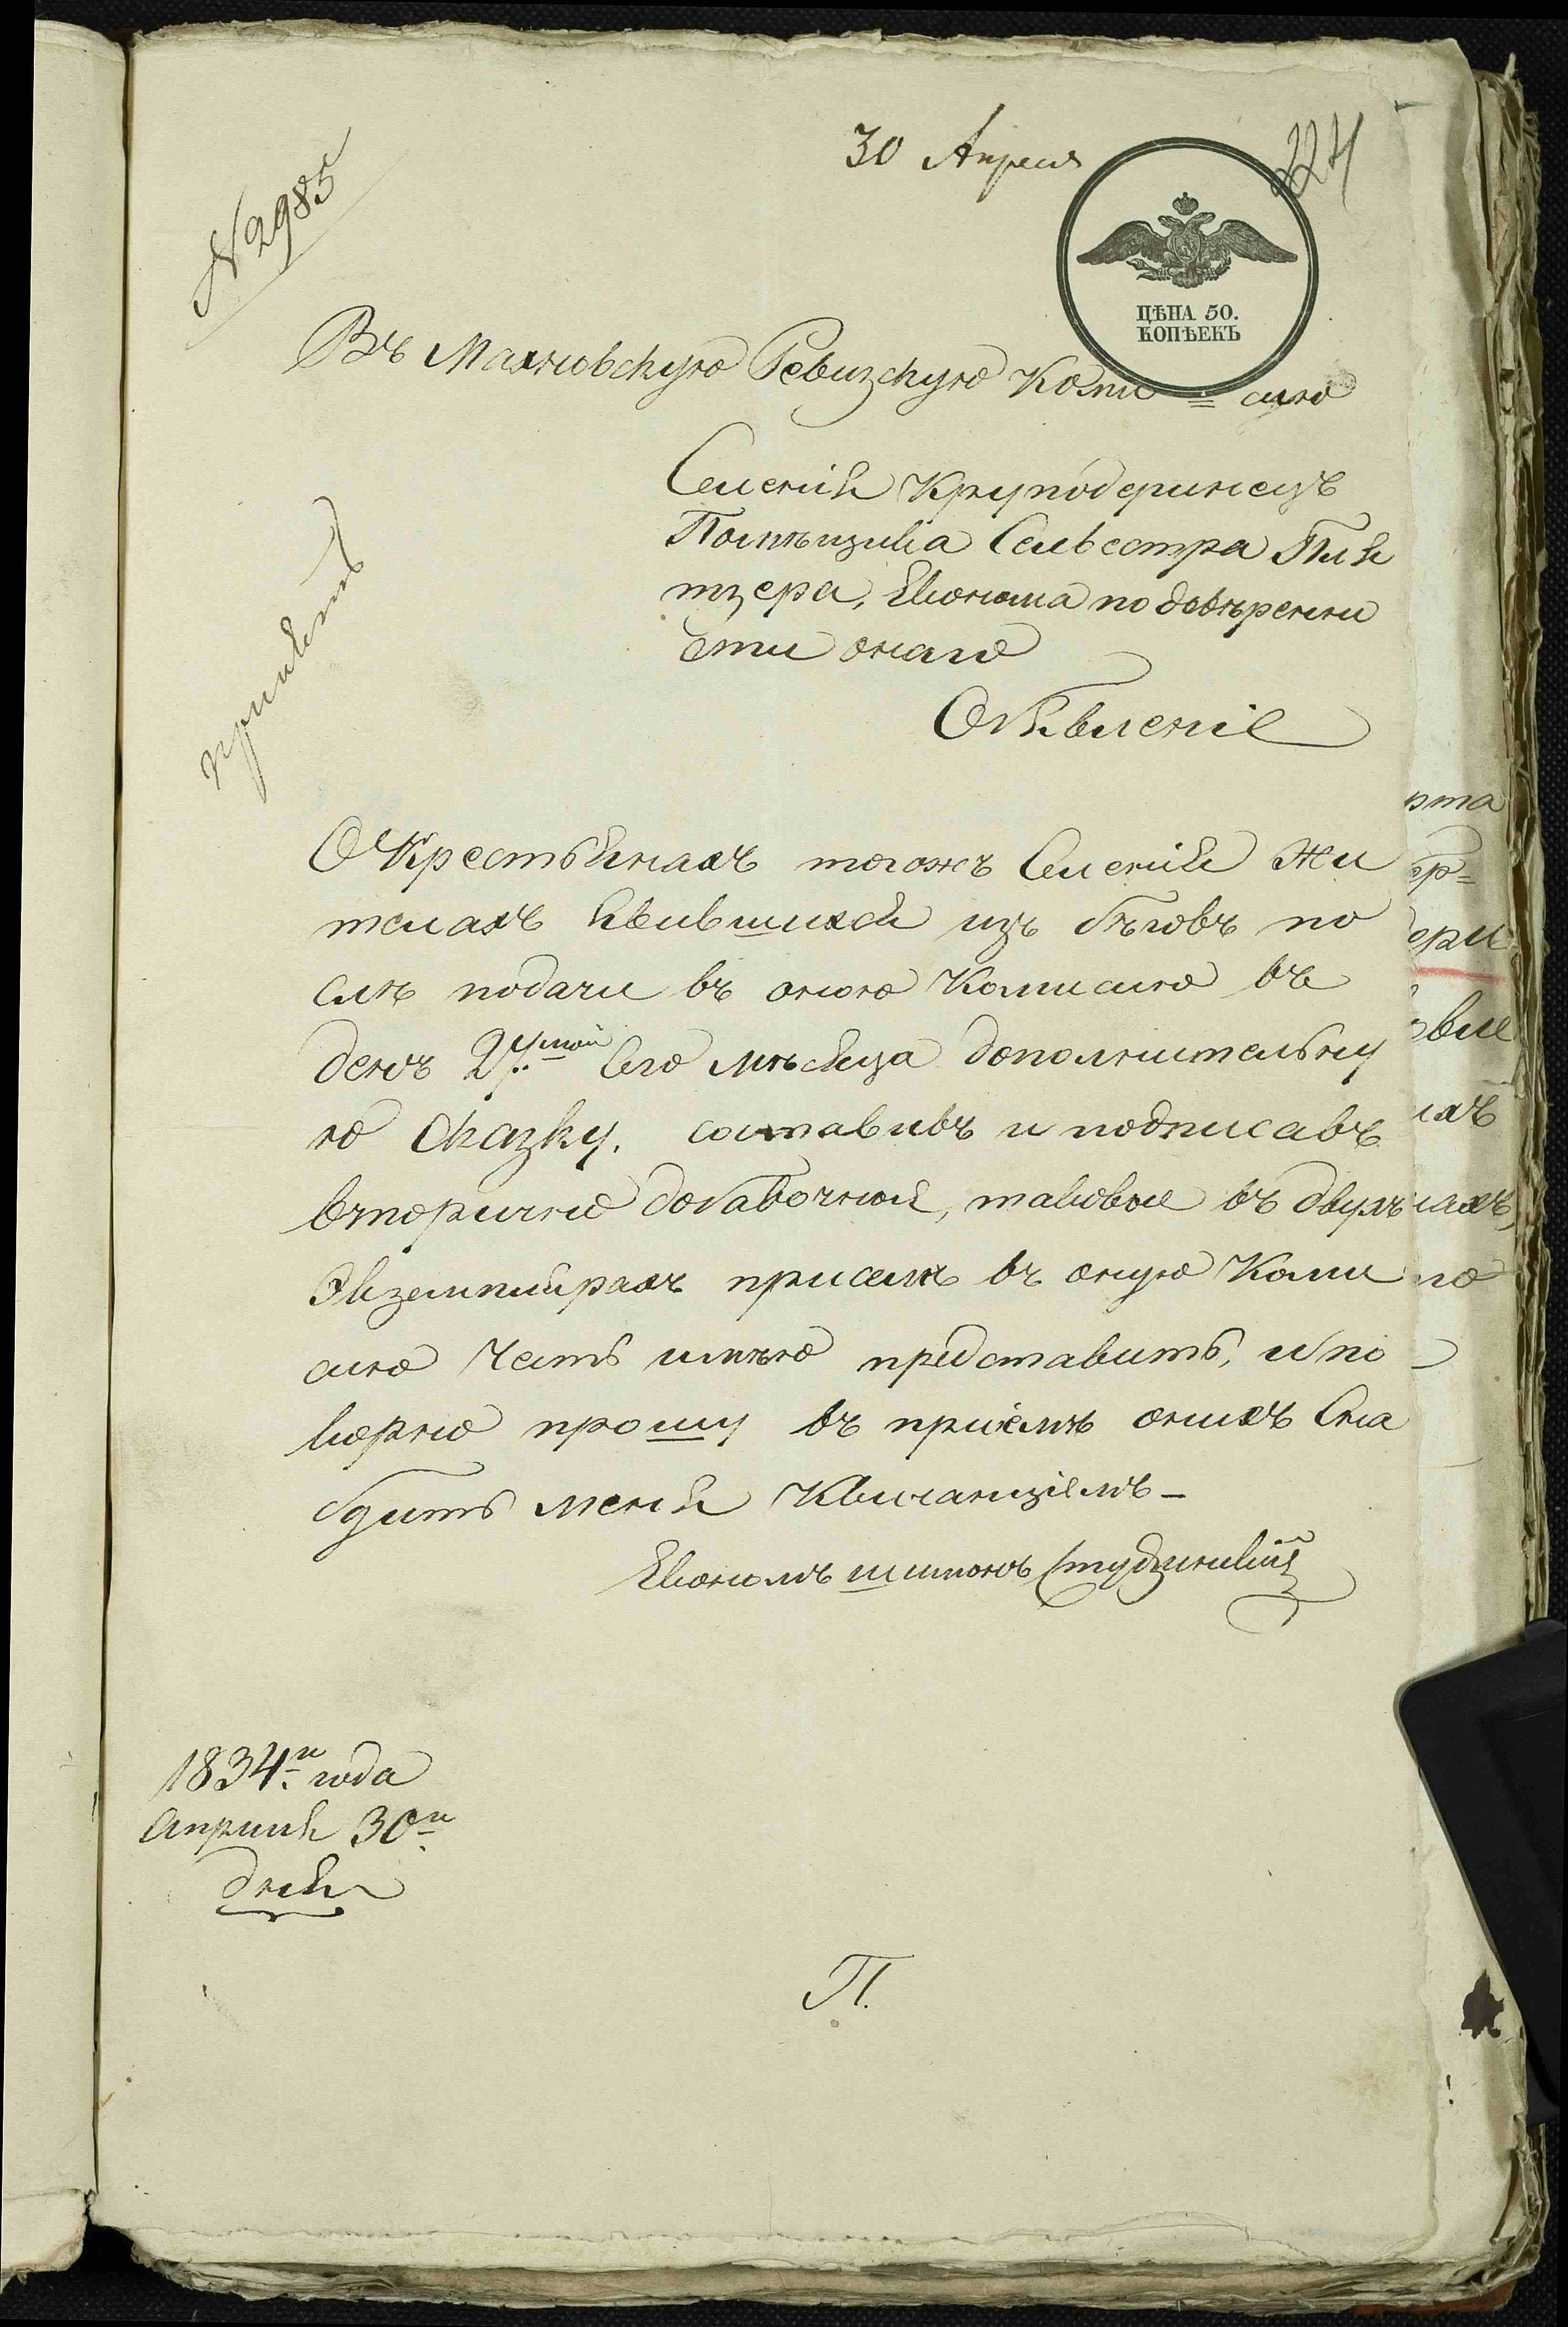 30 Апреля
224
№ 2985
ЦѢНА 50.
КОПѢЕКЪ
Въ Махновскую Ревизскую Коми = сию
Селенія Круподеринецъ
Помѣщика Селвестра Пля
тзера, Економа по довѣренно
сти онаго
Объявленіе
принять
О Крестьянахъ тогожъ Селенія жи
телахъ явившихся изъ бѣговъ по
слѣ подачи въ оною Комисию въ
день 27.мой Сего мѣсяца дополнительну
ю Сказку. составивъ и подписавъ
вторично добавочной, таковые въ двухъ
Экземплярахъ присемъ въ оную Коми
сию Честь имѣю представить, и по
корно прошу въ приемѣ онихъ Сна
бдить меня Квитанциемъ-
Економъ шимонъ Студзинскій
1834.го года
Априля 30.го
дня
П.
рта
ер=
ери
вле
ихъ
нахъ,
ло